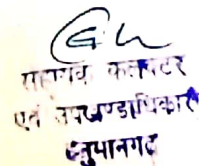 सहायक कलक्टर
एवं उपखण्डाधिकारी
अनुपानगढ